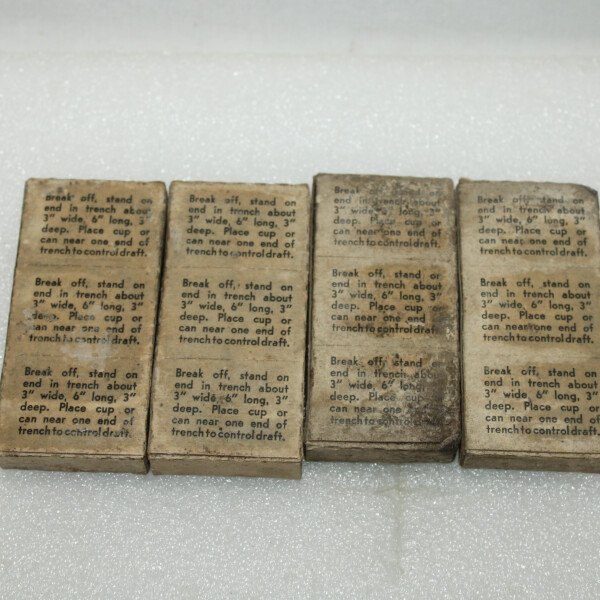 Break off, stand on
end in trench about
3" wide, 6" long, 3"
deep. Place cup or
can near one end of
trench to control draft.
Break off, stand on
end in trench about
3" wide, 6" long, 3"
deep. Place cup or
can near one end of
trench to control draft.
Break off, stand on
end in trench about
3" wide, 6" long, 3"
deep. Place cup or
can near one end of
trench to control draft.
Break off, stand on
end in trench about
3" wide, 6" long, 3"
deep. Place cup or
can near one end of
trench to control draft.
Break off, stand on
end in trench about
3" wide, 6" long, 3"
deep. Place cup or
can near one end of
trench to control draft.
Break off, stand on
end in trench about
3" wide, 6" long, 3"
deep. Place cup or
can near one end of
trench to control draft.
Break off, stand or
end in trench about
3" wide, 6" long, 3"
deep. Place cup or
can near one end of
trench to control draft.
Break off, stand or
end in trench about
3" wide, 6" long, 3"
deep. Place cup or
can near one end of
trench to control draft.
Break off, stand
end in trench about
3" wide, 6" long
deep. Place cup or
can near one end of
trench to control draft.
Break off, stand on
end in trench about
3" wide, 6" long, 3"
deep. Place cup or
can near one end of
trench to control draft.
Break off, stand on
end in trench about
3" wide, 6" long, 3"
deep. Place cup or
can near one end of
trench to control draft.
Break off, stand on
end in trench about
3" wide, 6" long, 3"
deep. Place cup or
can near one end of
trench to control draft.